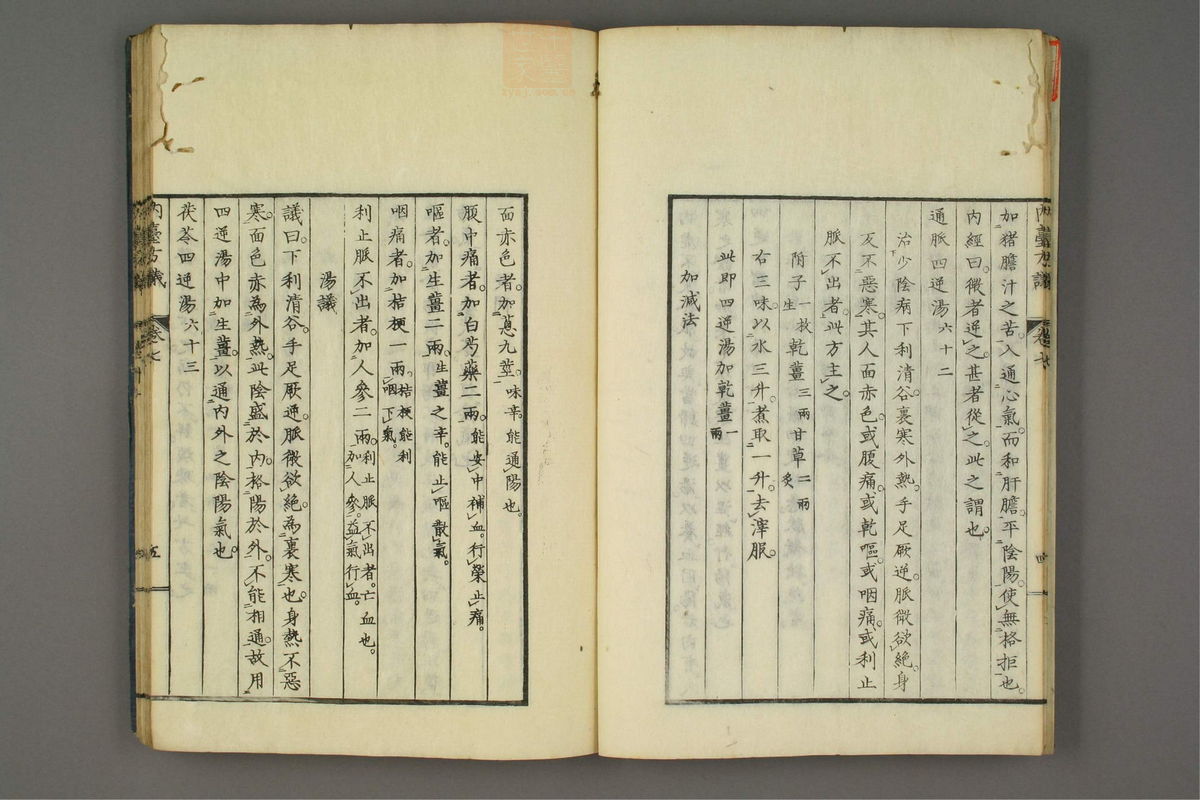 加猪膽汁之苦。入通心氣。而和肝膽。平陰陽。使無格拒也。
內經曰。微者逆之。甚者從之。此之謂也。
通脈四逆湯六十二
治少陰病下利清谷。裏寒外熱。手足厥逆。脈微欲絕。身
反不惡寒。其人面赤色。或腹痛。或乾嘔。或咽痛。或利止
脈不出者。此方主之。
附子一枚生 乾薑三兩 甘草二兩炙
右三味。以水三升。煮取一升。去滓服。
此即四逆湯加乾薑一兩
加減法
面赤色者。加蔥九莖。味辛。能通陽也。
腹中痛者。加白芍藥二兩。能安中補血。行榮止痛。
嘔者。加生薑二兩。生薑之辛。能止嘔散氣。
咽痛者。加桔梗一兩。桔梗能利咽下氣。
利止脈不出者。加人參二兩。利止脈不出者。亡血也。加人參。益氣行血。
湯議
議曰。下利清谷。手足厥逆。脈微欲絕。為裏寒也。身熱不惡
寒。面色赤。為外熱。此陰盛於內。格陽於外。不能相通。故用
四逆湯中加生薑。以通內外之陰陽氣也。
茯苓四逆湯六十三
內臺方議 卷七 五